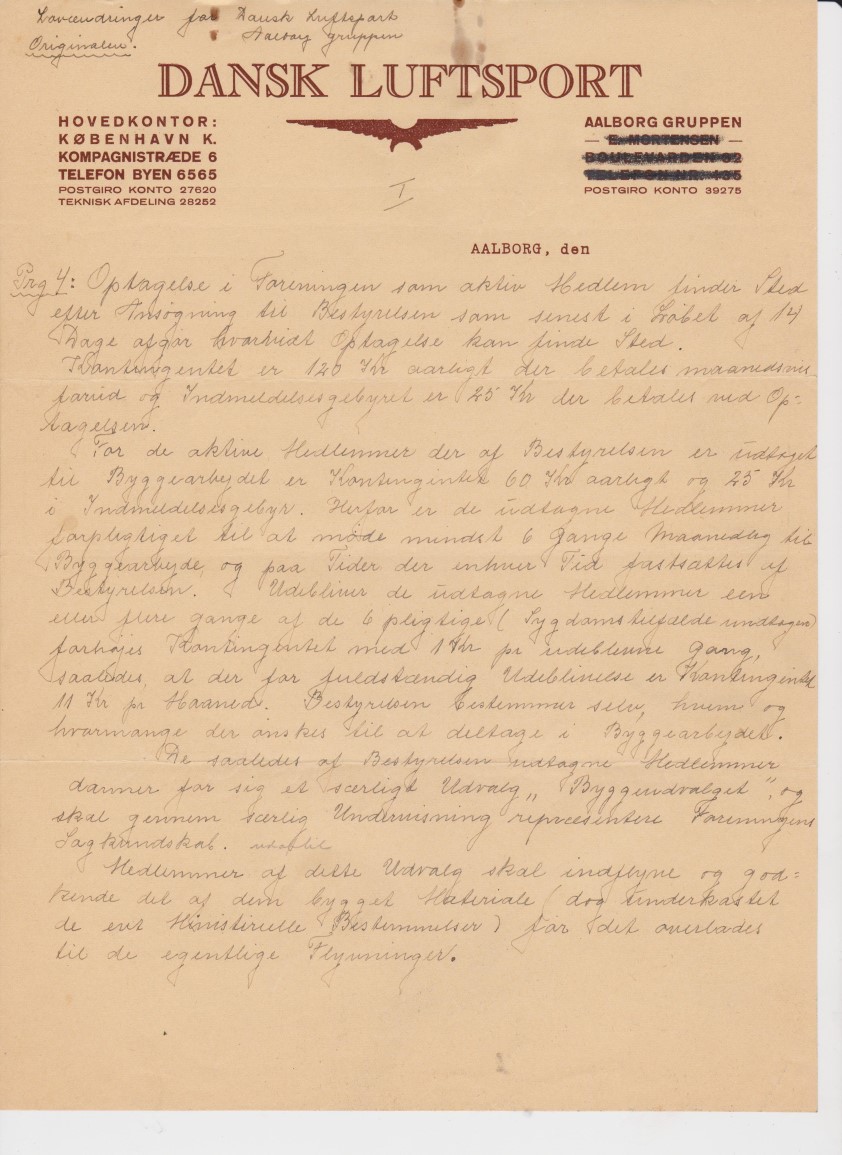 Lovændringer for Dansk Luftsport
Originalen. Aalborg gruppen
DANSK LUFTSPORT
HOVEDKONTOR:
KØBENHAVN K.
KOMPAGNISTRÆDE 6
TELEFON BYEN 6565
POSTGIRO KONTO 27620
TEKNISK AFDELING 28252
AALBORG GRUPPEN
— E. MORTENSEN —
BOULEVARDEN 32
TELEFON NR. 135
POSTGIRO KONTO 39275
I
AALBORG, den
Prg 4: Optagelse i Foreningen som aktiv Medlem finder Sted
efter Ansøgning til Bestyrelsen som senest i Løbet af 14
Dage afgør hvorvidt Optagelse kan finde Sted.
Kontingentet er 120 Kr aarligt der betales maanedsvis
forud og Indmeldelsesgebyret er 25 Kr der betales ved Op=
tagelsen.
For de aktive Medlemmer der af Bestyrelsen er udtaget
til Byggearbejdet er Kontingintet 60 Kr aarligt og 25 Kr
i Indmeldelsesgebyr. Herfor er de udtagne Medlemmer
forpligtiget til at møde mindst 6 Gange Maanedlig til
Byggearbejde, og paa Tider der enhver Tid fastsættes af
Bestyrelsen. Udebliver de udtagne Medlemmer een
eller flere gange af de 6 pligtige (Sygdomstilfælde undtagen)
forhøjes Kontingentet med 1 Kr pr udeblevne Gang,
saaledes, at der for fuldstændig Udeblivelse er Kontingintet
11 Kr pr Maaned. Bestyrelsen bestemmer selv, hvem og
hvormange der ønskes til at deltage i Byggearbejdet.
De saaledes af Bestyrelsen udtagne Medlemmer
danner for sig et særligt Udvalg „ Byggeudvalget ”, og
skal gennem særlig Undervisning repræsentere Foreningens
Sagkundskab.
Medlemmer af dette Udvalg skal indflyve og god=
kende det af dem bygget Materiale (dog underkastet
de evt Ministerielle Bestemmelser) før det overlades
til de egentlige Flyvninger.